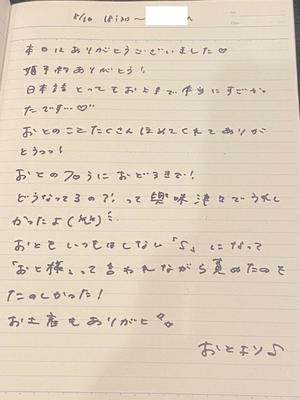 8/10 18:30〜
本日はありがとうございました♡
婚予約ありがとう!
日本語とってもお上手で本当にすごかっ
たです…♡
おとのことたくさんほめてくれてありが
とうっっ!
おとのフロうにおどろきで!
どうなってるの?!って興味津々でうれし
かったよ(笑)
おともいつもはしない「S」になって
「おと様」って言われながら責めたのも
たのしかった!
お土産もありがと
おとより♪